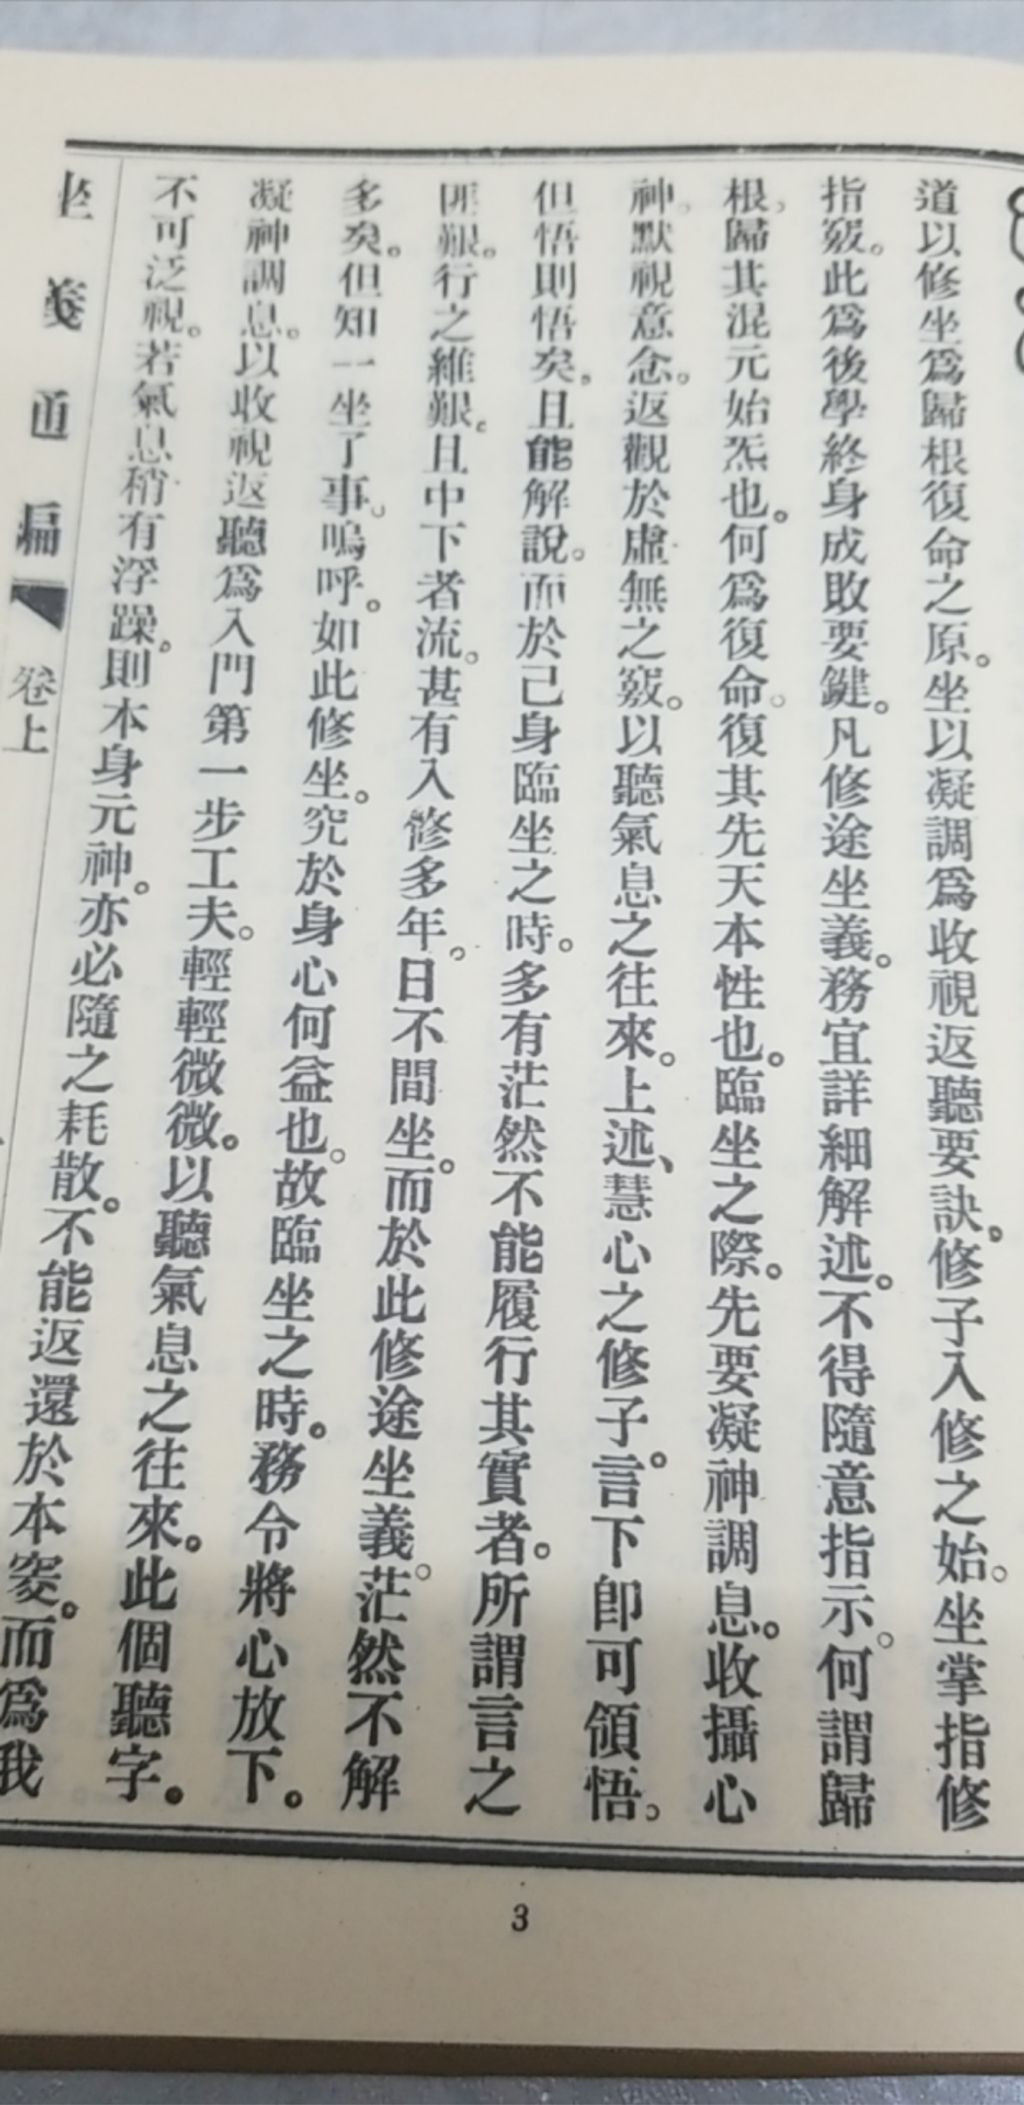 道以修坐爲歸根復命之原。坐以凝調爲收視返聽要訣。修子入修之始。坐掌指修
指竅。此爲後學終身成敗要鍵。凡修途坐義。務宜詳細解述。不得隨意指示。何謂歸
根。歸其混元始炁也。何爲復命。復其先天本性也。臨坐之際。先要凝神調息。收攝心
神。默視意念。返觀於虛無之竅。以聽氣息之往來。上述、慧心之修子。言下卽可領悟。
但悟則悟矣。且能解說。而於己身臨坐之時。多有茫然不能履行其實者。所謂言之
匪艱。行之維艱。且中下者流。甚有入修多年。日不間坐。而於此修途坐義。茫然不解
多矣。但知一坐了事。嗚呼。如此修坐。究於身心何益也。故臨坐之時。務令將心放下。
凝神調息。以收視返聽爲入門第一步工夫。輕輕微微。以聽氣息之往來。此個聽字。
不可泛視。若氣息稍有浮躁。則本身元神。亦必隨之耗散。不能返還於本窔。而爲我
坐義通扁 卷上
3